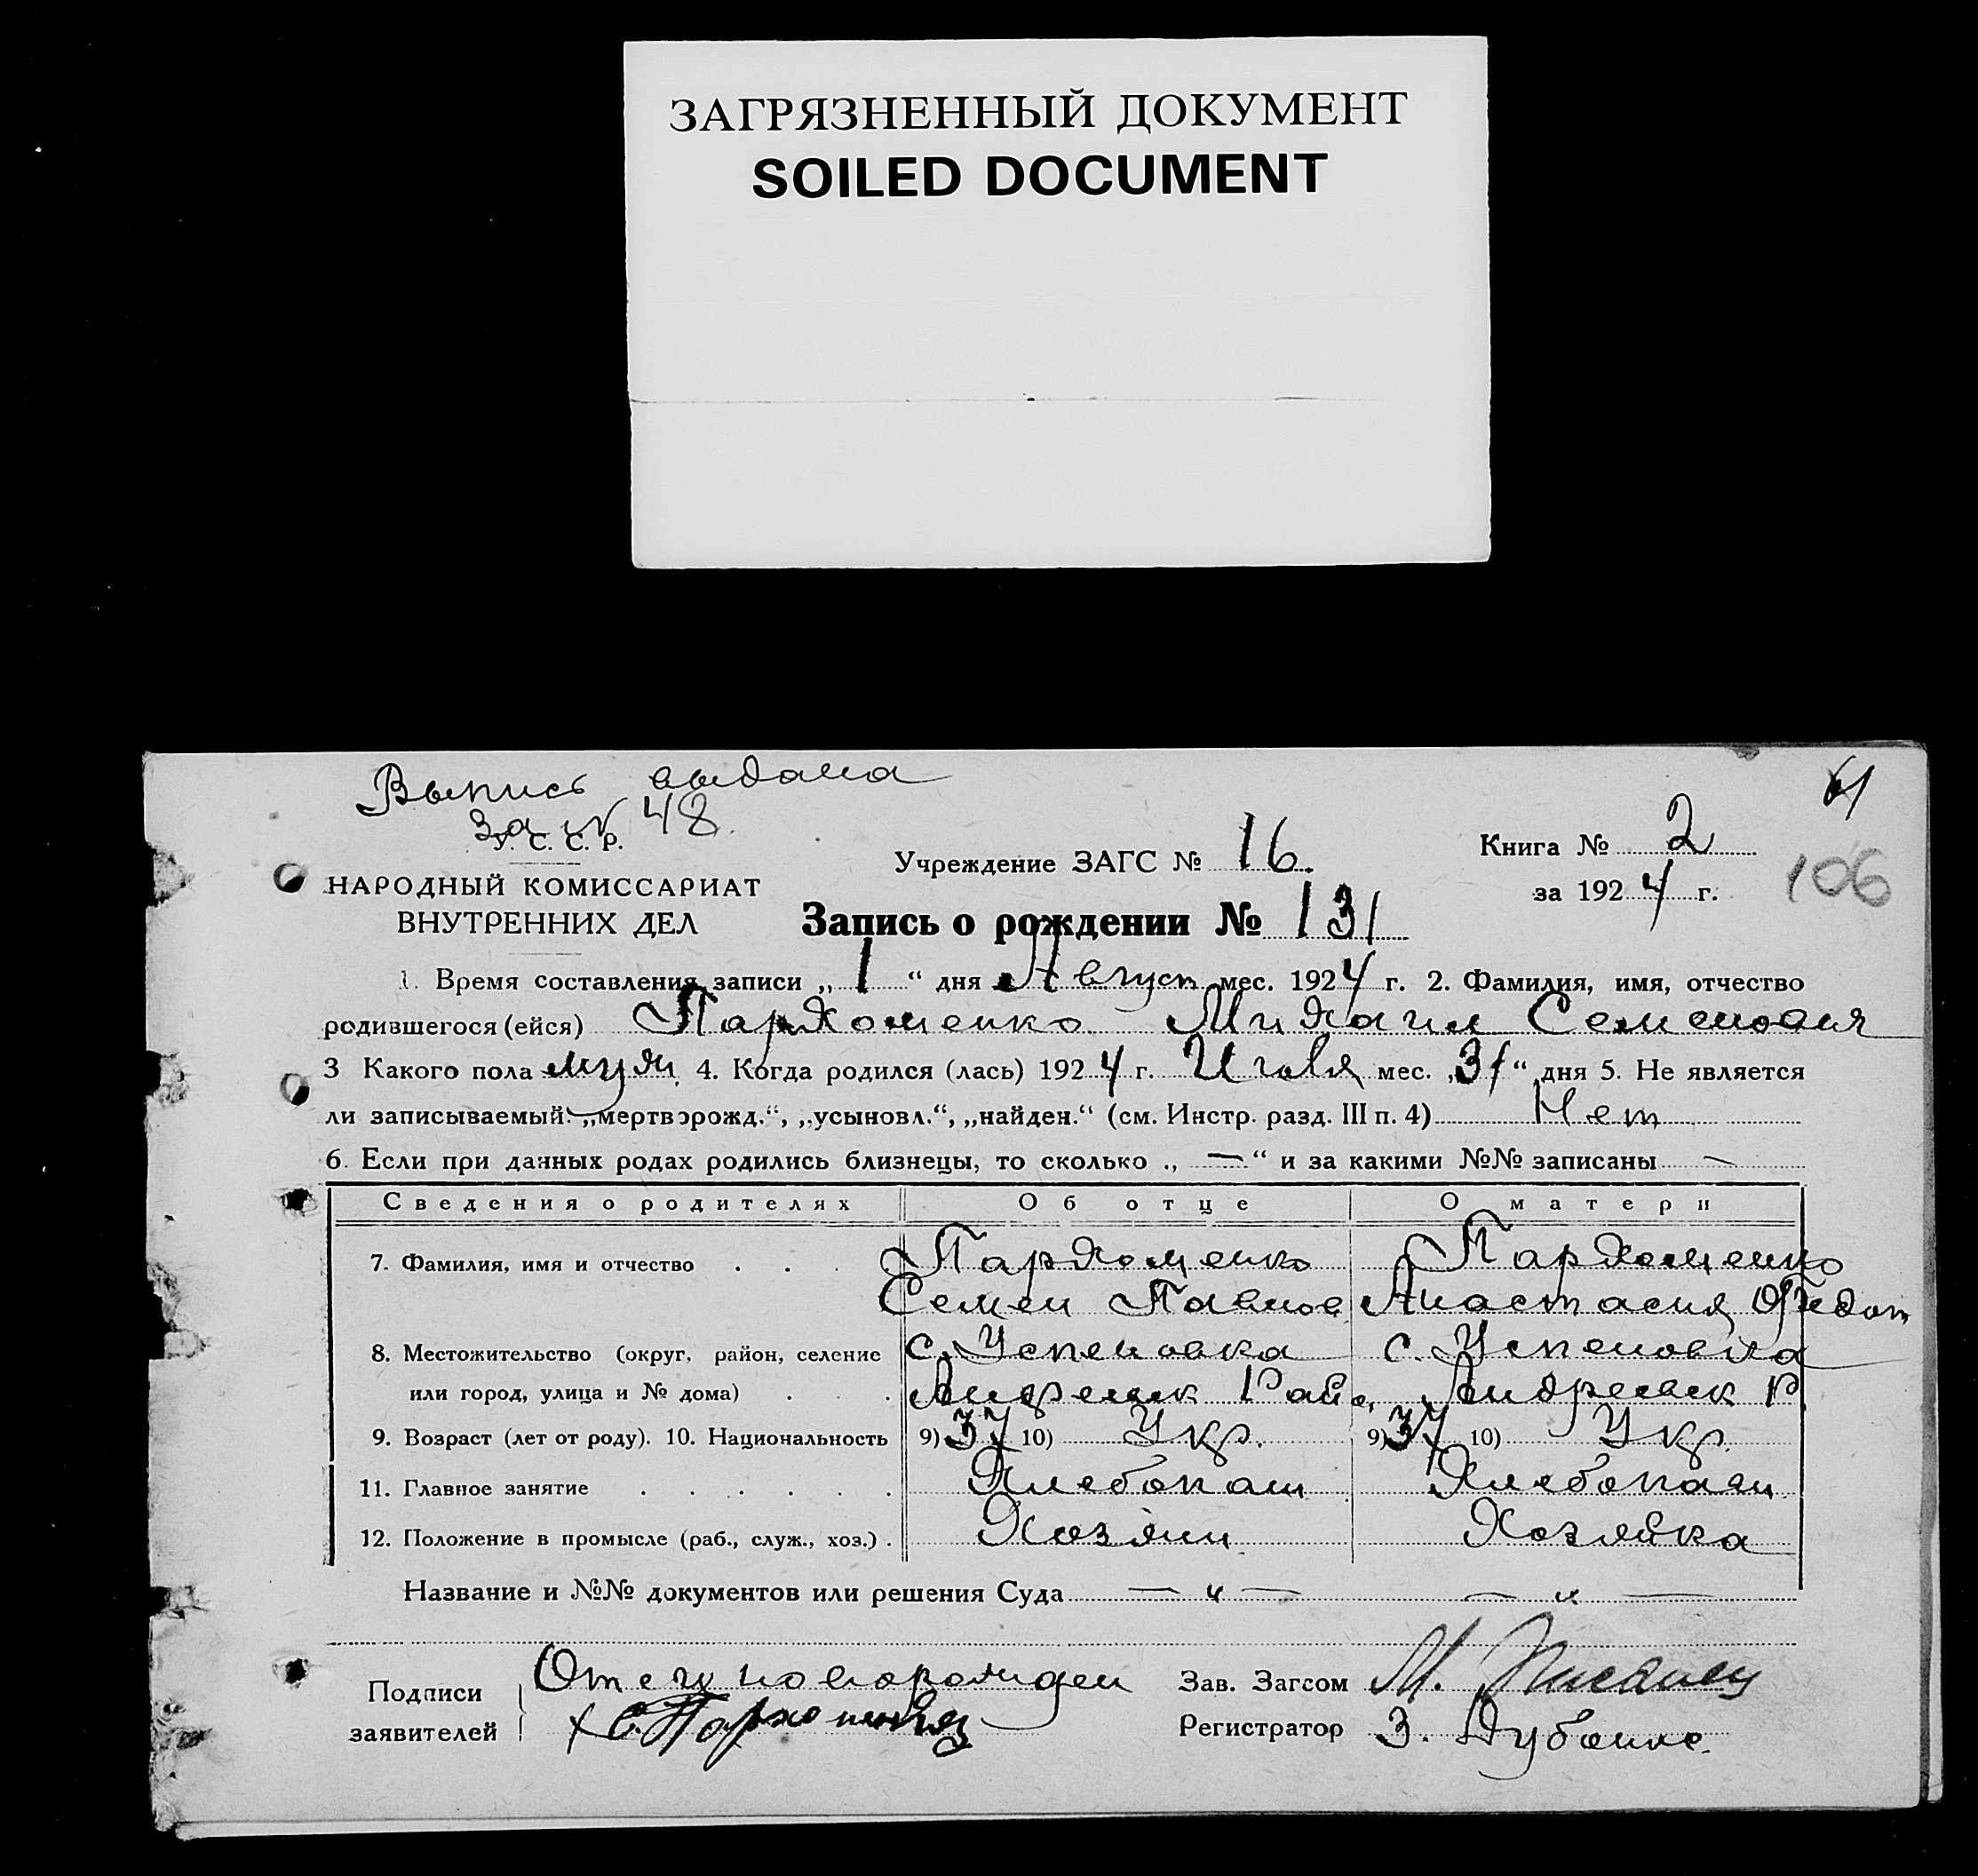 ЗАГРЯЗНЕННЫЙ ДОКУМЕНТ
SOILED DOCUMENT
Выпись выдана
за № 48
У. С. С. Р.
НАРОДНЫЙ КОМИССАРИАТ
ВНУТРЕННИХ ДЕЛ
Учреждение ЗАГС № 16.
Книга № 2
за 1924 г.
106
Запись о рождении № 131
1. Время составления записи „ 1 “ дня Август мес. 1924 г. 2. Фамилия, имя, отчество
родившегося (ейся) Пархоменко Михаил Семенович
3 Какого пола муж. 4. Когда родился (лась) 1924 г. Июля мес. „31“ дня 5. Не является
ли записываемый: „мертворожд.“, „усыновл.“, „найден.“ (см. Инстр. разд. III п. 4) Нет
6. Если при данных родах родились близнецы, то сколько „ — “ и за какими №№ записаны —
Сведения о родителях Об отце О матери
7. Фамилия, имя и отчество . . . Пархоменко Пархоменко
Семен Павлов Анастасия Федот
8. Местожительство (округ, район, селение с. Успеновка с. Успеновка
или город, улица и № дома) . . Андреевск Рай Андреевск Р
9. Возраст (лет от роду). 10. Национальность 9) 37 10) Укр. 9) 37 10) Укр.
11. Главное занятие . . . . . . Хлебопаш Хлебопаш
12. Положение в промысле (раб., служ., хоз.) . Хозяин Хозяйка
Название и №№ документов или решения Суда — „ — — „ —
Подписи
заявителей
Отец новорожден
х С. Пархоменко
Зав. Загсом М.
Регистратор З.